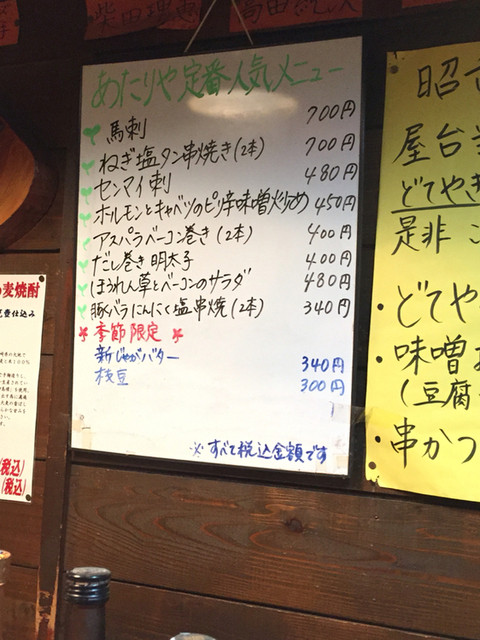 あたりや定番人気メニュー
馬刺 700円
ねぎ塩タン串焼き(2本) 700円
センマイ刺 480円
ホルモンとキャベツのピリ辛味噌炒め 450円
アスパラベーコン巻き(2本) 400円
だし巻き明太子 400円
ほうれん草とベーコンのサラダ 480円
豚バラにんにく塩串焼(2本) 340円
季節限定
新じゃがバター 340円
枝豆 300円
※すべて税込金額です
昭
屋台
どてやき
是非
・どてや
・味噌お
(豆腐
・串かつ
麦焼酎
仕込み
(税込)
(税込)